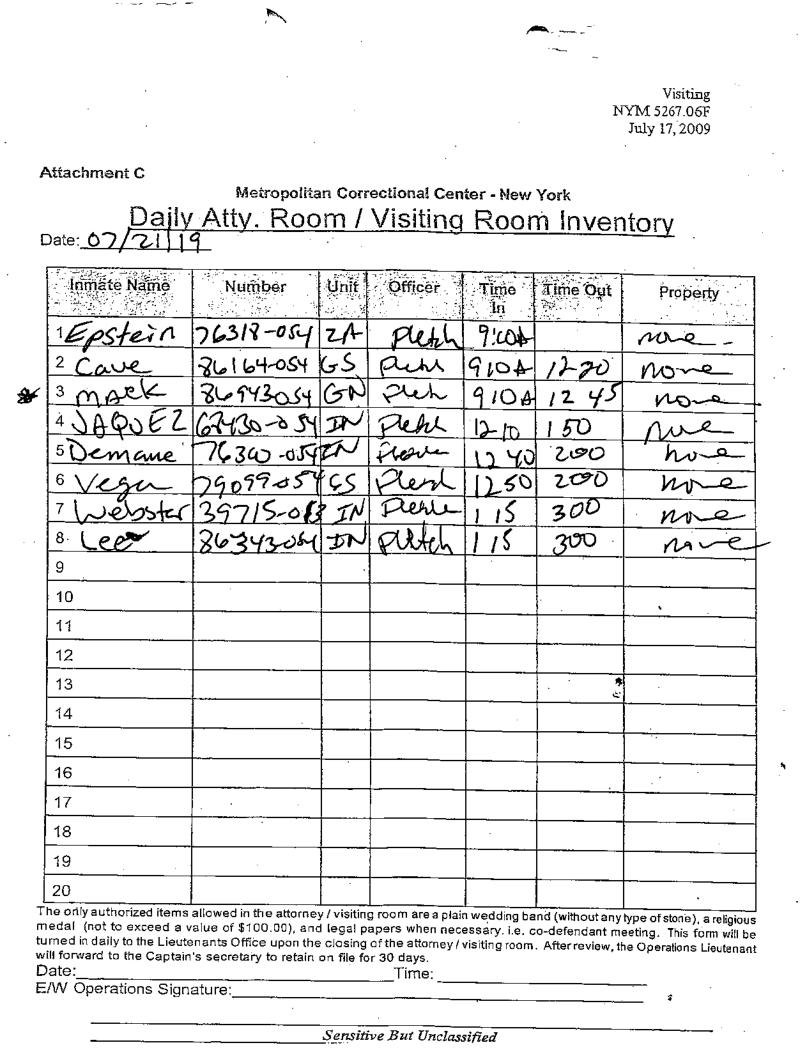 Visiting
NYM 5267.06F
July 17, 2009
Attachment C
Metropolitan Correctional Center - New York
Daily Atty. Room / Visiting Room Inventory
Date: 07/21/19
Inmate Name Number Unit Officer Time In Time Out Property
1 Epstein 76318-054 ZA Pletch 9:00A none -
2 Cave 86164-054 GS 910A 12-20 none
3 Mack 86943054 GN 910A 12 45 none
4 JAQUEZ 67430-054 IN 12 10 150 none
5 Demane 76360-054 IN 12 40 200 none
6 Vega 79099-054 GS 1250 200 none
7 Webster 39715-013 IN 1 15 300 none
8 Lee 86343-054 IN Pletch 1 15 300 none
9
10
11
12
13
14
15
16
17
18
19
20
The only authorized items allowed in the attorney / visiting room are a plain wedding band (without any type of stone), a religious
medal (not to exceed a value of $100.00), and legal papers when necessary. i.e. co-defendant meeting. This form will be
turned in daily to the Lieutenants Office upon the closing of the attorney / visiting room. After review, the Operations Lieutenant
will forward to the Captain's secretary to retain on file for 30 days.
Date: Time:
E/W Operations Signature:
Sensitive But Unclassified